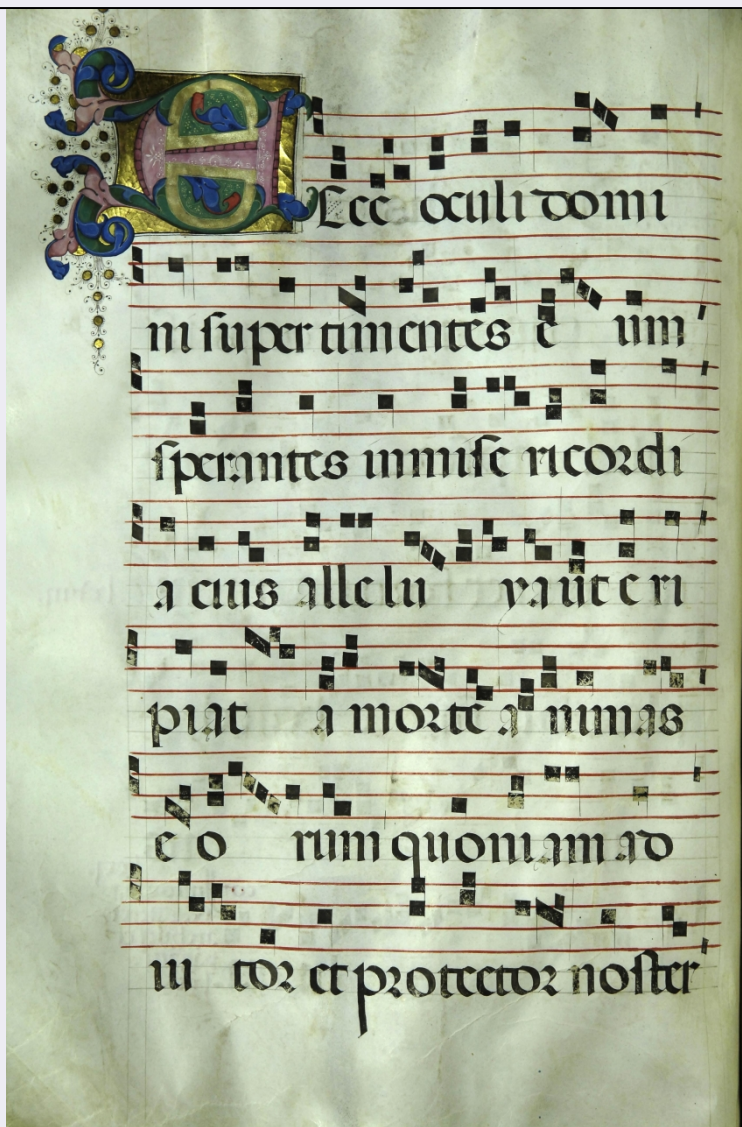 Ecce oculi domi
ni super timentes e um
sperantes in mise ricordi
a eius allelu ya ut e ri
piat a morte a nimas
e o rum quoniam ad
iu tor et protector noster